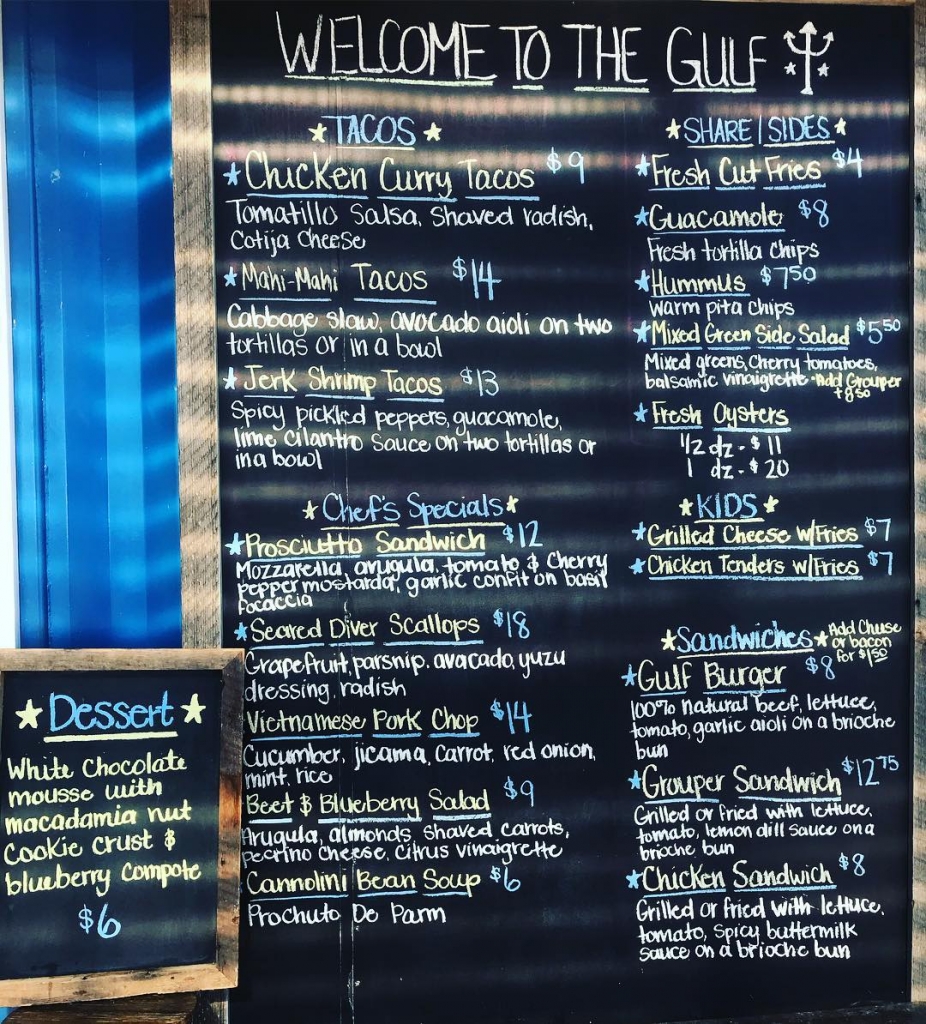 WELCOME TO THE GULF
TACOS
Chicken Curry Tacos $9
Tomatillo Salsa, Shaved radish,
Cotija Cheese
Mahi-Mahi Tacos $14
Cabbage slaw, avocado aioli on two
tortillas or in a bowl
Jerk Shrimp Tacos $13
Spicy pickled peppers, guacamole,
lime cilantro Sauce on two tortillas or
in a bowl
Chef's Specials
Prosciutto Sandwich $12
Mozzarella, arugula, tomato & Cherry
pepper mostarda, garlic confit on basil
focaccia
Seared Diver Scallops $18
Grapefruit, parsnip, avocado, yuzu
dressing, radish
Vietnamese Pork Chop $14
Cucumber, jicama, Carrot, red onion,
mint, rice
Beet & Blueberry Salad $9
Arugula, almonds, shaved carrots,
pecorino cheese, Citrus vinaigrette
Cannolini Bean Soup $6
Prochuto De Parm
SHARE | SIDES
Fresh Cut Fries $4
Guacamole $8
Fresh tortilla chips
Hummus $7.50
warm pita chips
Mixed Green Side Salad $5.50
Mixed greens, Cherry tomatoes,
balsamic vinaigrette *Add Grouper
+8.50
Fresh Oysters
1/2 dz - $11
1 dz - $20
KIDS
Grilled Cheese w/Fries $7
Chicken Tenders w/Fries $7
Sandwiches
Add Cheese
or bacon
for $1.50
Gulf Burger $8
100% natural beef, lettuce,
tomato, garlic aioli on a brioche
bun
Grouper Sandwich $12.75
Grilled or fried with lettuce,
tomato, lemon dill sauce on a
brioche bun
Chicken Sandwich $8
Grilled or fried with lettuce,
tomato, spicy buttermilk
sauce on a brioche bun
Dessert
White Chocolate
mousse with
macadamia nut
Cookie crust &
blueberry compote
$6